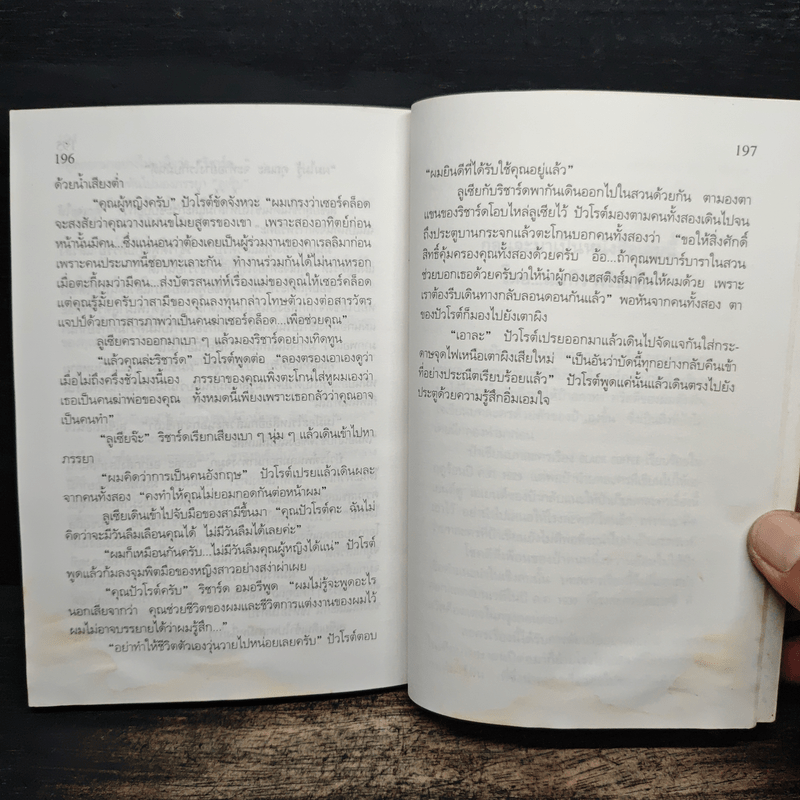 196
ด้วยน้ำเสียงต่ำ
"คุณผู้หญิงครับ" ปัวโรต์ขัดจังหวะ "ผมเกรงว่าเซอร์คล็อด
จะสงสัยว่าคุณวางแผนขโมยสูตรของเขา เพราะสองอาทิตย์ก่อน
หน้านั้นมีคน...ซึ่งแน่นอนว่าต้องเคยเป็นผู้ร่วมงานของคาเรลลิมาก่อน
เพราะคนประเภทนี้ชอบทะเลาะกัน ทำงานร่วมกันได้ไม่นานหรอก
เมื่อตะกี้ผมว่ามีคน...ส่งบัตรสนเท่ห์เรื่องแม่ของคุณให้เซอร์คล็อด
แต่คุณรู้มั้ยครับว่าสามีของคุณลงทุนกล่าวโทษตัวเองต่อสารวัตร
แจปป์ด้วยการสารภาพว่าเป็นคนฆ่าเซอร์คล็อด...เพื่อช่วยคุณ"
ลูเซียครางออกมาเบา ๆ แล้วมองริชาร์ดอย่างเทิดทูน
"แล้วคุณล่ะริชาร์ด" ปัวโรต์พูดต่อ "ลองตรองเอาเองดูว่า
เมื่อไม่ถึงครึ่งชั่วโมงนี้เอง ภรรยาของคุณเพิ่งตะโกนใส่หูผมเองว่า
เธอเป็นคนฆ่าพ่อของคุณ ทั้งหมดนี้เพียงเพราะเธอกลัวว่าคุณอาจ
เป็นคนทำ"
"ลูเซียจ๊ะ" ริชาร์ดเรียกเสียงเบา ๆ นุ่ม ๆ แล้วเดินเข้าไปหา
ภรรยา
"ผมคิดว่าการเป็นคนอังกฤษ" ปัวโรต์เปรยแล้วเดินผละ
จากคนทั้งสอง "คงทำให้คุณไม่ยอมกอดกันต่อหน้าผม"
ลูเซียเดินเข้าไปจับมือของสามีขึ้นมา "คุณปัวโรต์คะ ฉันไม่
คิดว่าจะมีวันลืมเลือนคุณได้ ไม่มีวันลืมได้เลยค่ะ"
"ผมก็เหมือนกันครับ...ไม่มีวันลืมคุณผู้หญิงได้แน่" ปัวโรต์
พูดแล้วก้มลงจุมพิตมือของหญิงสาวอย่างสง่าผ่าเผย
"คุณปัวโรต์ครับ" ริชาร์ด อมอรีพูด "ผมไม่รู้จะพูดอะไร
นอกเสียจากว่า คุณช่วยชีวิตของผมและชีวิตการแต่งงานของผมไว้
ผมไม่อาจบรรยายได้ว่าผมรู้สึก..."
"อย่าทำให้ชีวิตตัวเองวุ่นวายไปหน่อยเลยครับ" ปัวโรต์ตอบ
197
"ผมยินดีที่ได้รับใช้คุณอยู่แล้ว"
ลูเซียกับริชาร์ดพากันเดินออกไปในสวนด้วยกัน ตามองตา
แขนของริชาร์ดโอบไหล่ลูเซียไว้ ปัวโรต์มองตามคนทั้งสองเดินไปจน
ถึงประตูบานกระจกแล้วตะโกนบอกคนทั้งสองว่า "ขอให้สิ่งศักดิ์
สิทธิ์คุ้มครองคุณทั้งสองด้วยครับ อ้อ...ถ้าคุณพบบาร์บาราในสวน
ช่วยบอกเธอด้วยครับว่าให้นำผู้กองเฮสติงส์มาคืนให้ผมด้วย เพราะ
เราต้องรีบเดินทางกลับลอนดอนกันแล้ว" พอหันจากคนทั้งสอง ตา
ของปัวโรต์ก็มองไปยังเตาผิง
"เอาละ" ปัวโรต์เปรยออกมาแล้วเดินไปจัดแจกันใส่กระ-
ดาษจุดไฟเหนือเตาผิงเสียใหม่ "เป็นอันว่าบัดนี้ทุกอย่างกลับคืนเข้า
ที่อย่างประณีตเรียบร้อยแล้ว" ปัวโรต์พูดแค่นั้นแล้วเดินตรงไปยัง
ประตูด้วยความรู้สึกอิ่มเอมใจ